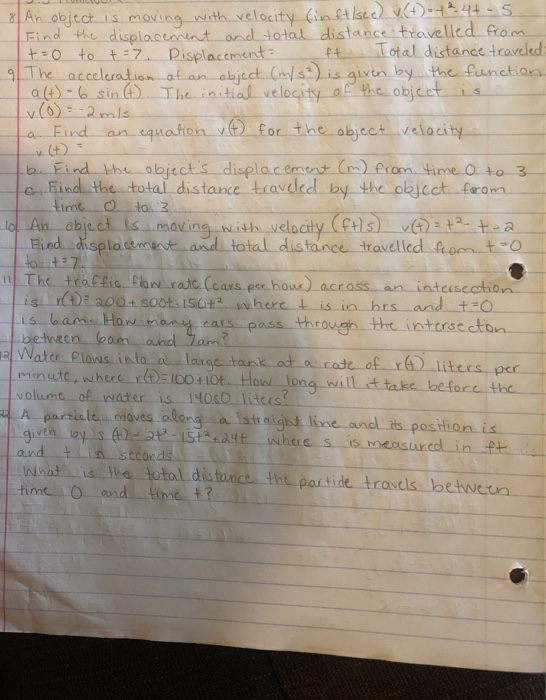 8 An object is moving with velocity (in ft/sec) v(t)=t²-4t-5
Find the displacement and total distance travelled from
t=0 to t=7. Displacement= ft Total distance traveled
9 The acceleration of an object (m/s²) is given by the function
a(t)=6 sin(t) The initial velocity of the object is
v(0)=-2m/s
a. Find an equation v(t) for the object velocity
v(t)=
b. Find the object's displacement (m) from time 0 to 3
c. Find the total distance traveled by the object from
time 0 to 3
10 An object is moving with velocity (ft/s) v(t)=t²-t-2
Find displacement and total distance travelled from t=0
to t=7.
11 The traffic flow rate (cars per hour) across an intersection
is r(t)=200+500t-150t² where t is in hrs and t=0
is 6am. How many cars pass through the intersecton
between 6am and 7am?
12 Water flows into a large tank at a rate of r(t) liters per
minute, where r(t)=100+10t. How long will it take before the
volume of water is 14080 liters?
A particle moves along a straight line and its position is
given by s(t)=2t³-15t²+24t where s is measured in ft
and t in seconds.
What is the total distance the partide travels between
time 0 and time t?